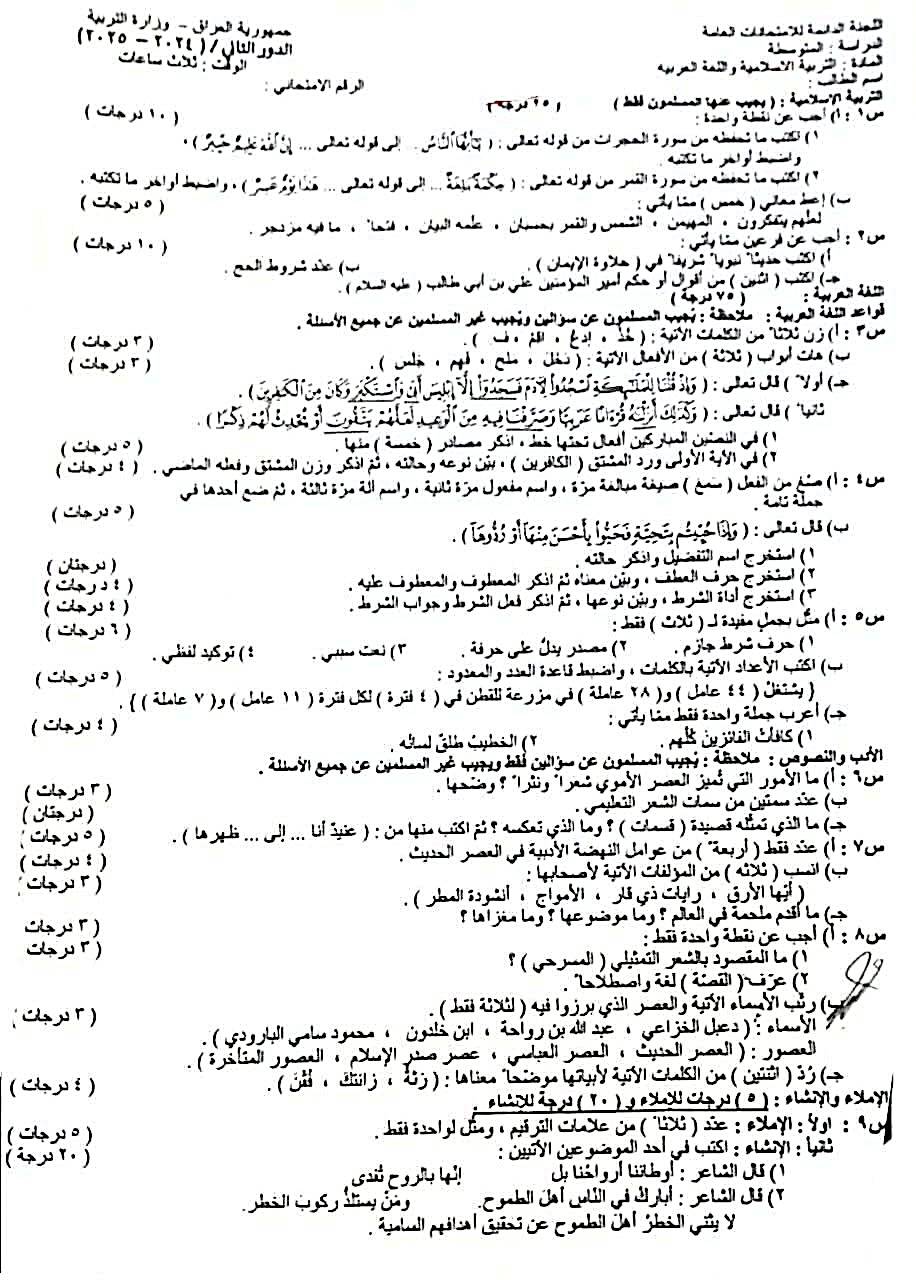 اللجنة الدائمة للامتحانات العامة
الدراسة : المتوسطة
المادة : التربية الاسلامية واللغة العربية
اسم الطالب :
جمهورية العراق - وزارة التربية
الدور الثاني / ( ٢٠٢٤ - ٢٠٢٥ )
الوقت : ثلاث ساعات
الرقم الامتحاني :
التربية الاسلامية : ( يجيب عنها المسلمون فقط ) ( ٢٥ درجة )
س١ : أ) أجب عن نقطة واحدة : ( ١٠ درجات )
١) اكتب ما تحفظه من سورة الحجرات من قوله تعالى : ( يَٰٓأَيُّهَا ٱلنَّاسُ ... إلى قوله تعالى ... إِنَّ ٱللَّهَ عَلِيمٌ خَبِيرٌ ) ،
واضبط أواخر ما تكتبه .
٢) اكتب ما تحفظه من سورة القمر من قوله تعالى : ( حِكْمَةٌۢ بَٰلِغَةٌ ... إلى قوله تعالى ... هَٰذَا يَوْمٌ عَسِرٌ ) ، واضبط أواخر ما تكتبه .
ب) إعط معاني ( خمس ) مما يأتي : ( ٥ درجات )
لعلهم يتفكرون ، المهيمن ، الشمس والقمر بحسبان ، علمه البيان ، فتحاً ، ما فيه مزدجر .
س٢ : أجب عن فرعين مما يأتي : ( ١٠ درجات )
أ) اكتب حديثاً نبوياً شريفاً في ( حلاوة الإيمان ) . ب) عدد شروط الحج .
جـ) اكتب ( اثنين ) من أقوال أو حكم أمير المؤمنين علي بن أبي طالب ( عليه السلام ) .
اللغة العربية : ( ٧٥ درجة )
قواعد اللغة العربية : ملاحظة : يُجيب المسلمون عن سؤالين ويُجيب غير المسلمين عن جميع الأسئلة .
س٣ : أ) زن ثلاثاً من الكلمات الآتية : ( خُذْ ، إدع ، اقمْ ، ف ) . ( ٣ درجات )
ب) هات أبواب ( ثلاثة ) من الأفعال الآتية : ( نخل ، ملح ، فهم ، جلس ) . ( ٣ درجات )
جـ) أولاً ) قال تعالى : ( وَإِذْ قُلْنَا لِلْمَلَٰٓئِكَةِ ٱسْجُدُوا۟ لِـَٔادَمَ فَسَجَدُوٓا۟ إِلَّآ إِبْلِيسَ أَبَىٰ وَٱسْتَكْبَرَ وَكَانَ مِنَ ٱلْكَٰفِرِينَ ) .
ثانياً ) قال تعالى : ( وَكَذَٰلِكَ أَنزَلْنَٰهُ قُرْءَانًا عَرَبِيًّا وَصَرَّفْنَا فِيهِ مِنَ ٱلْوَعِيدِ لَعَلَّهُمْ يَتَّقُونَ أَوْ يُحْدِثُ لَهُمْ ذِكْرًا ) .
١) في النصين المباركين أفعال تحتها خط ، اذكر مصادر ( خمسة ) منها . ( ٥ درجات )
٢) في الآية الأولى ورد المشتق ( الكافرين ) ، بيّن نوعه وحالته ، ثمّ اذكر وزن المشتق وفعله الماضي . ( ٤ درجات )
س٤ : أ) صُغ من الفعل ( سَمِعَ ) صيغة مبالغة مرّة ، واسم مفعول مرّة ثانية ، واسم آلة مرّة ثالثة ، ثم ضع أحدها في
جملة تامة . ( ٥ درجات )
ب) قال تعالى : ( وَإِذَا حُيِّيتُم بِتَحِيَّةٍ فَحَيُّوا۟ بِأَحْسَنَ مِنْهَآ أَوْ رُدُّوهَآ ) .
١) استخرج اسم التفضيل واذكر حالته . ( درجتان )
٢) استخرج حرف العطف ، وبيّن معناه ثمّ اذكر المعطوف والمعطوف عليه . ( ٤ درجات )
٣) استخرج أداة الشرط ، وبيّن نوعها ، ثمّ اذكر فعل الشرط وجواب الشرط . ( ٤ درجات )
س٥ : أ) مثّل بجمل مفيدة لـ ( ثلاث ) فقط : ( ٦ درجات )
١) حرف شرط جازم . ٢) مصدر يدلّ على حرفة . ٣) نعت سببي . ٤) توكيد لفظي .
ب) اكتب الأعداد الآتية بالكلمات ، واضبط قاعدة العدد والمعدود : ( ٥ درجات )
{ يشتغلُ ( ٤٤ عامل ) و( ٢٨ عاملة ) في مزرعة للقطن في ( ٤ فترة ) لكل فترة ( ١١ عامل ) و( ٧ عاملة ) } .
جـ) أعرب جملة واحدة فقط ممّا يأتي : ( ٤ درجات )
١) كافأتُ الفائزينَ كُلَّهم . ٢) الخطيبُ طلقٌ لسانُه .
الأدب والنصوص : ملاحظة : يُجيب المسلمون عن سؤالين فقط ويجيب غير المسلمين عن جميع الأسئلة .
س٦ : أ) ما الأمور التي تُميز العصر الأموي شعراً ونثراً ؟ وضّحها . ( ٣ درجات )
ب) عدّد سمتين من سمات الشعر التعليمي . ( درجتان )
جـ) ما الذي تمثله قصيدة ( قسمات ) ؟ وما الذي تعكسه ؟ ثمّ اكتب منها من : ( عنيدٌ أنا ... إلى ... ظهرها ) . ( ٥ درجات )
س٧ : أ) عدّد فقط ( أربعة ) من عوامل النهضة الأدبية في العصر الحديث . ( ٤ درجات )
ب) انسب ( ثلاثة ) من المؤلفات الآتية لأصحابها : ( ٣ درجات )
( أيّها الأرق ، رايات ذي قار ، الأمواج ، أنشودة المطر ) .
جـ) ما أقدم ملحمة في العالم ؟ وما موضوعها ؟ وما مغزاها ؟ ( ٣ درجات
س٨ : أ) أجب عن نقطة واحدة فقط : ( ٣ درجات )
١) ما المقصود بالشعر التمثيلي ( المسرحي ) ؟
٢) عرّف ( القصّة ) لغة واصطلاحاً .
ب) رتّب الأسماء الآتية والعصر الذي برزوا فيه ( لثلاثة فقط ) : ( ٣ درجات )
الأسماء : ( دعبل الخزاعي ، عبد الله بن رواحة ، ابن خلدون ، محمود سامي البارودي ) .
العصور : ( العصر الحديث ، العصر العباسي ، عصر صدر الإسلام ، العصور المتأخرة ) .
جـ) رُدّ ( اثنتين ) من الكلمات الآتية لأبياتها موضّحاً معناها : ( زنةُ ، زانتكَ ، فُقْنَ ) . ( ٤ درجات )
الإملاء والإنشاء : ( ٥ ) درجات للإملاء و ( ٢٠ ) درجة للإنشاء .
س٩ : اولاً : الإملاء : عدّد ( ثلاثاً ) من علامات الترقيم ، ومثّل لواحدة فقط . ( ٥ درجات )
ثانياً : الإنشاء : اكتب في أحد الموضوعين الآتيين : ( ٢٠ درجة )
١) قال الشاعر : أوطاننا أرواحُنا بل إنّها بالروح تُفدى
٢) قال الشاعر : أباركُ في النّاسِ أهلَ الطموح. ومَنْ يستلذُّ ركوبَ الخطر.
لا يثني الخطرُ أهلَ الطموح عن تحقيق أهدافهم السامية .